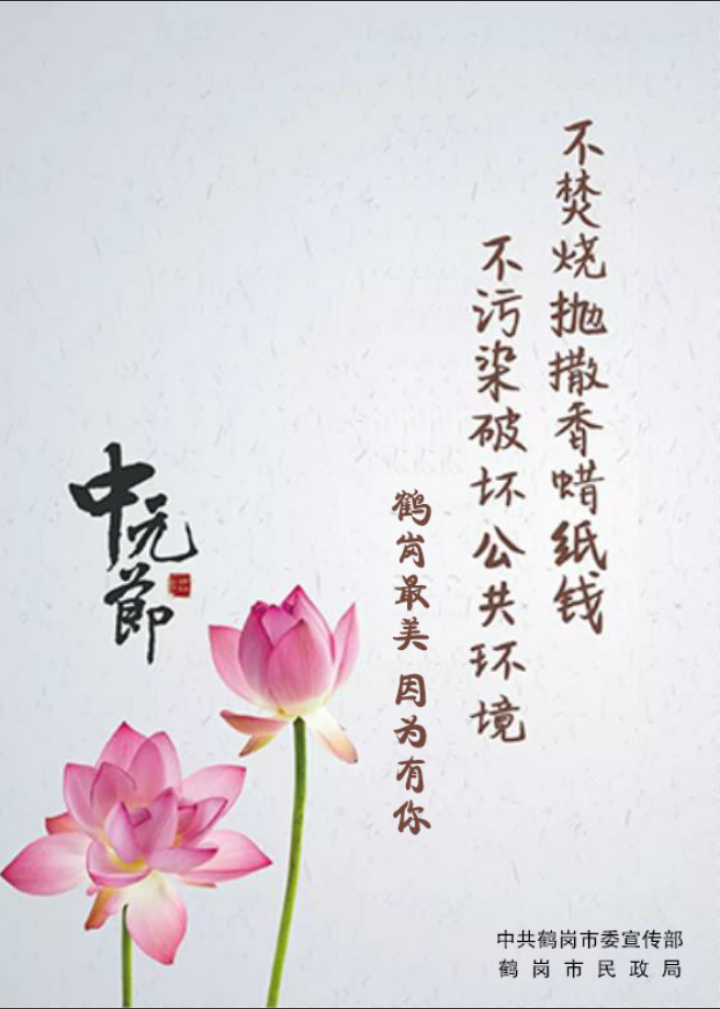 不焚烧抛撒香蜡纸钱
不污染破坏公共环境
鹤岗最美 因为有你
中元節
中共鹤岗市委宣传部
鹤岗市民政局